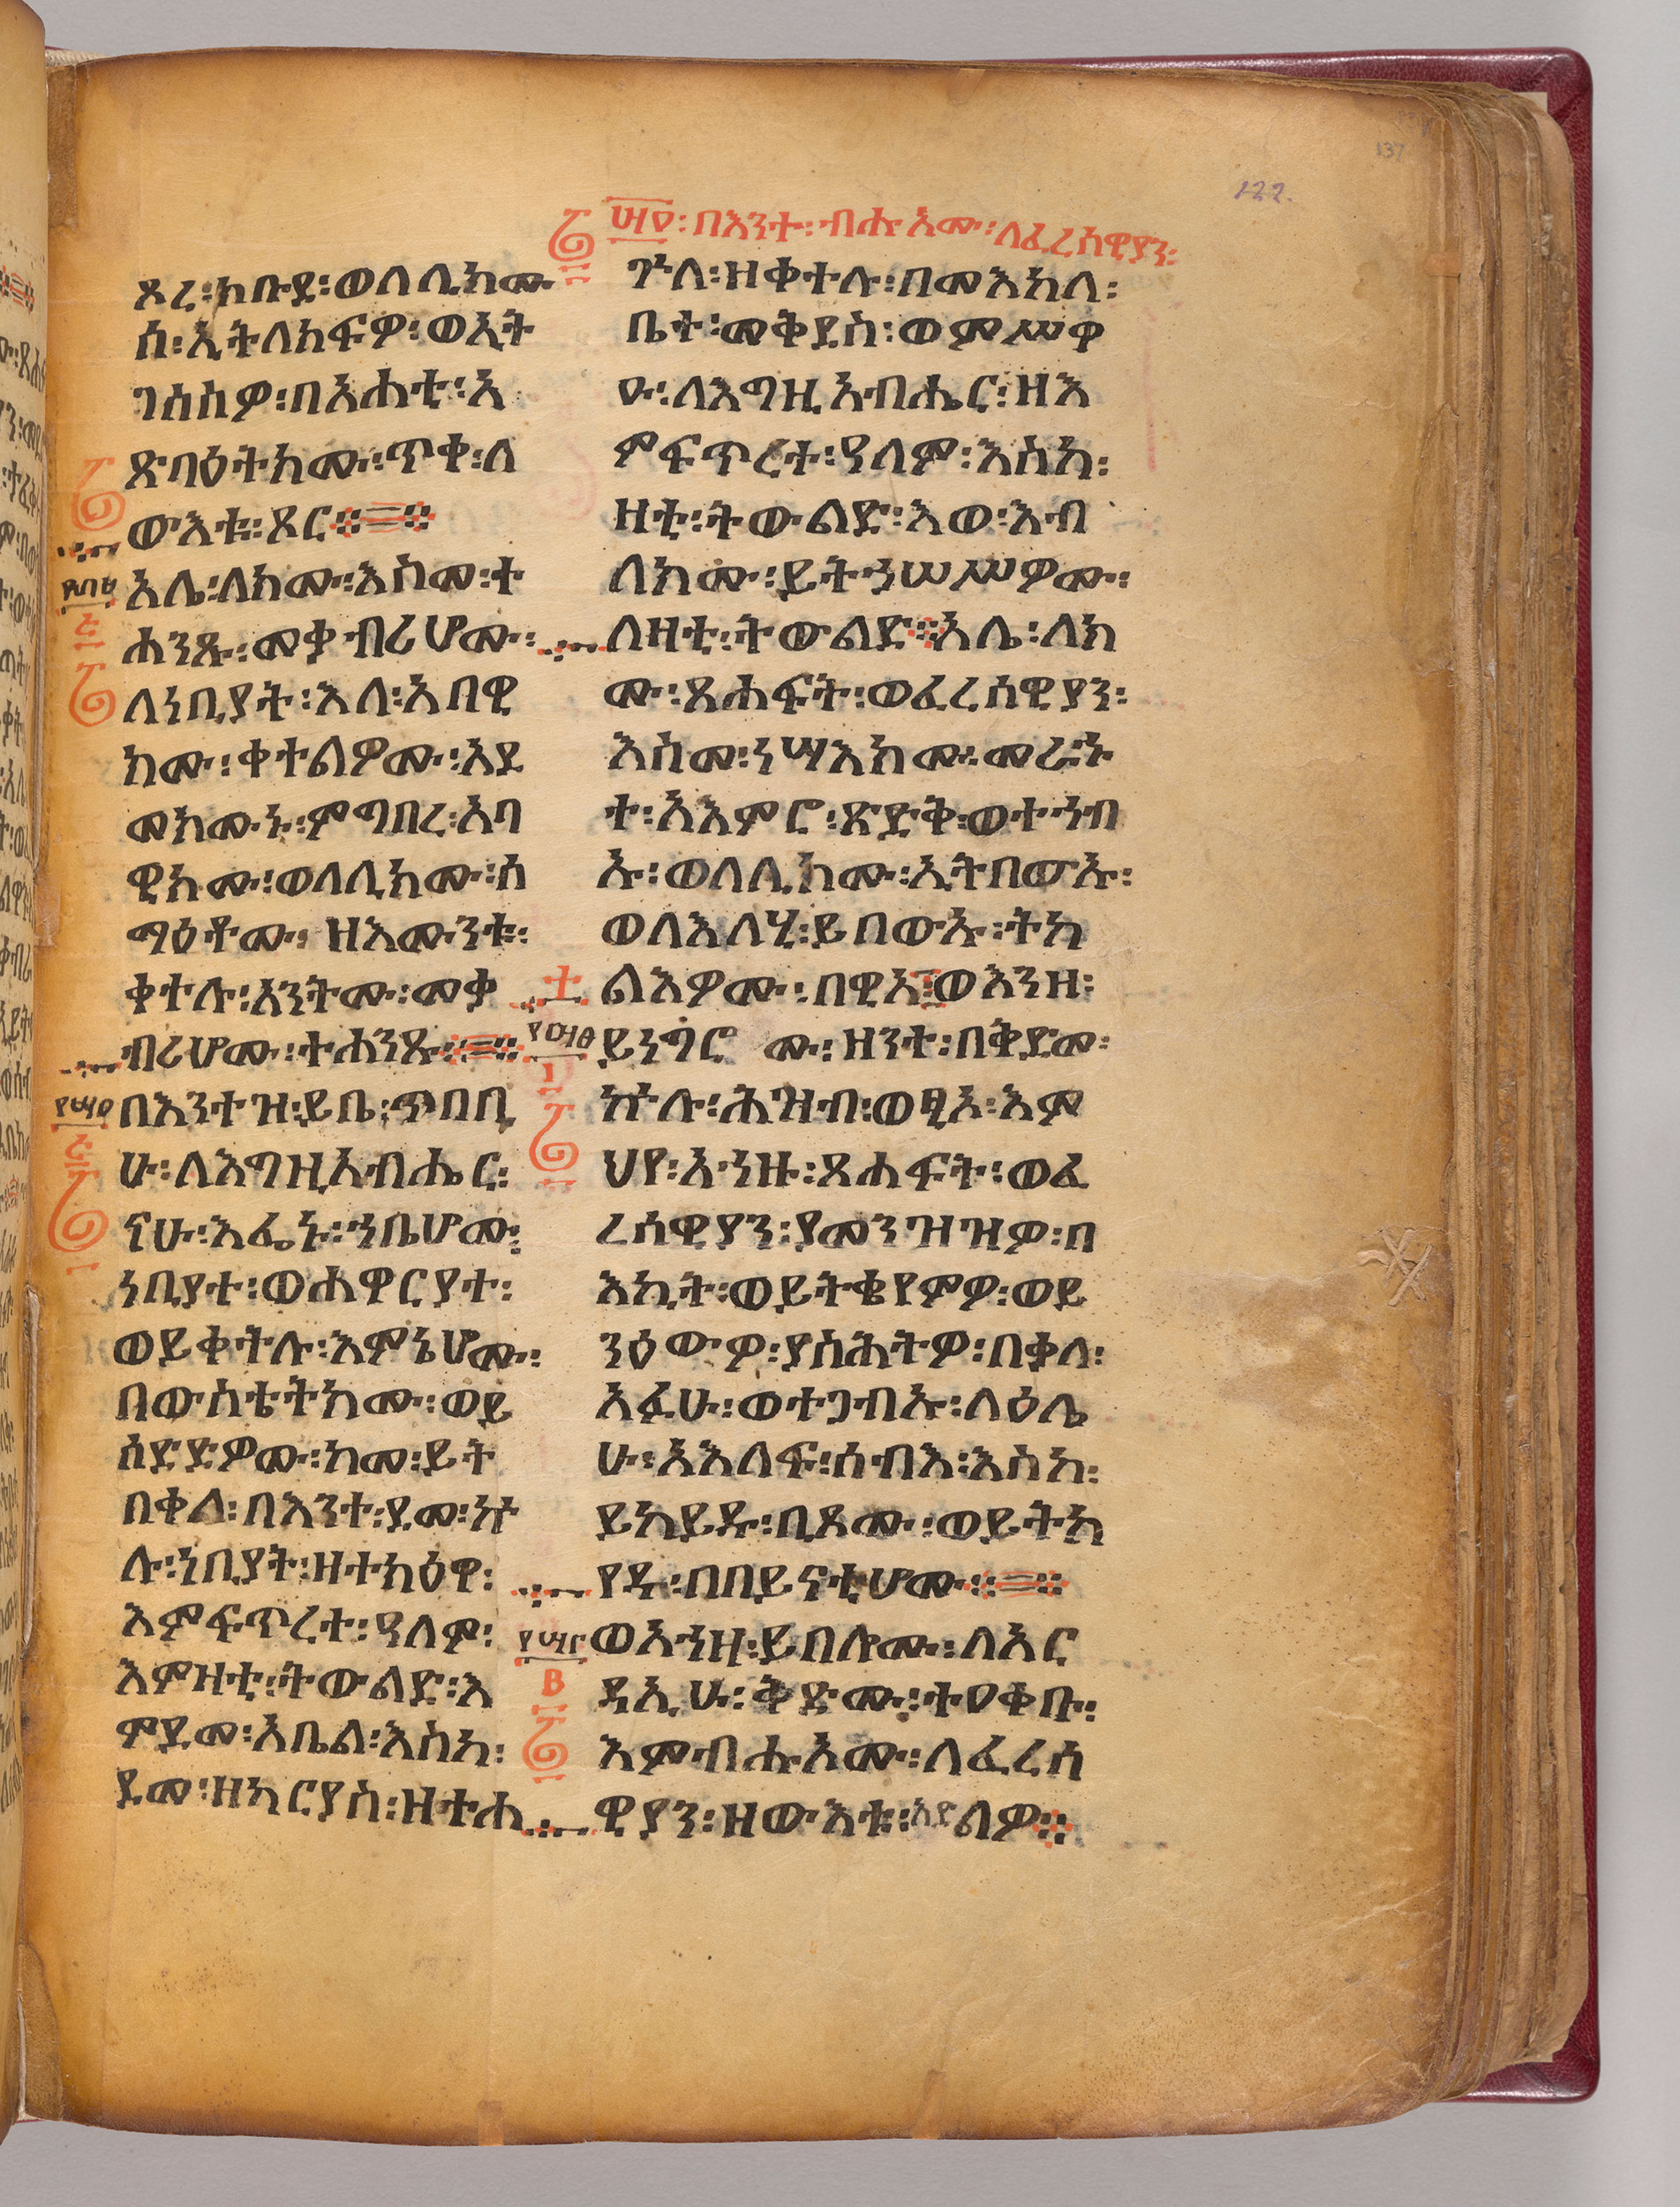 137
122.
፵፬፡ በእንተ፡ ብሑእሙ፡ ለፈረሰዊያን፡
ጾረ፡ ክቡደ፡ ወለሊክሙ
ሰ፡ ኢትለክፍዎ፡ ወኢት
ገሰስዎ፡ በአሐቲ፡ አ
ጽባዕትክሙ፡ ጥቀ፡ ለ
ውእቱ፡ ጾር
አሌ፡ ለክሙ፡ እስመ፡ ተ
ሐንጹ፡ መቃብሪሆሙ፡
ለነቢያት፡ እለ፡ አበዊ
ክሙ፡ ቀተልዎሙ፡ አደ
መክሙኑ፡ ምግበረ፡ አባ
ዊክሙ፡ ወለሊክሙ፡ ሰ
ማዕቶሙ፡ ዘእሙንቱ፡
ቀተሉ፡ አንትሙ፡ መቃ
ብሪሆሙ፡ ተሐንጹ
በእንተዝ፡ ይቤ፡ ጥበቢ
ሁ፡ ለእግዚአብሔር፡
ናሁ፡ እፌኑ፡ ኀቤሆሙ፡
ነቢያተ፡ ወሐዋርያተ፡
ወይቀትሉ፡ እምኔሆሙ፡
በውስቴትክሙ፡ ወይ
ሰድድዎሙ፡ ከመ፡ ይት
በቀል፡ በእንተ፡ ደመ፡ ኵ
ሉ፡ ነቢያት፡ ዘተክዕወ፡
እምፍጥረተ፡ ዓለም፡
እምዝቲ፡ ትውልድ፡ እ
ምደመ፡ አቤል፡ እስከ፡
ደመ፡ ዘካርያስ፡ ዝተሐ
ጕለ፡ ዘቀተሉ፡ በመእከለ፡
ቤተ፡ መቅደስ፡ ወምሥዋ
ዑ፡ ለእግዚአብሔር፡ ዘእ
ምፍጥረተ፡ ዓለም፡ እስከ፡
ዘቲ፡ ትውልድ፡ እወ፡ እብ
ለክሙ፡ ይትኃሠሥዎሙ፡
ለዘቲ፡ ትውልድ አሌ፡ ለክ
ሙ፡ ጸሐፍት፡ ወፈረሰዊያን፡
እስመ፡ ነሣእክሙ፡ መራኁ
ተ፡ አእምሮ፡ ጽድቅ፡ ወተኀብ
ኡ፡ ወለሊክሙ፡ ኢትበውኡ፡
ወለእለሂ፡ ይበውኡ፡ ትከ
ልእዎሙ፡ በዊአ ወእንዘ፡
ይነግሮሙ፡ ዘንተ፡ በቅድመ፡
ኵሉ፡ ሕዝብ፡ ወፂአ፡ እም
ህየ፡ አኀዙ፡ ጸሐፍት፡ ወፈ
ረሰዊያን፡ ያመንዝዝዎ፡ በ
እኪት፡ ወይትቄየምዎ፡ ወይ
ንዕውዎ፡ ያስሕትዎ፡ በቃለ፡
አፉሁ፡ ወተጋብኡ፡ ለዕሌ
ሁ፡ አእላፍ፡ ሰብእ፡ እስከ፡
ይከይዱ፡ ቢጾሙ፡ ወይትከ
የዱ፡ በበይናቲሆሙ
ወእኀዘ፡ ይበሎሙ፡ ለአር
ዳኢሁ፡ ቅድሙ፡ ተዐቀቡ፡
እምብሑእሙ፡ ለፈረሰ
ዊያን፡ ዘውእቱ፡ አድልዎ